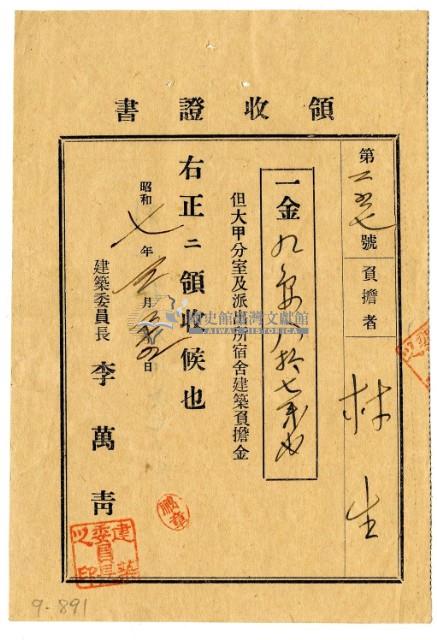 領收證書
第二五七號 負擔者 林生
一金九円八拾七錢也
但大甲分室及派出所宿舍建築負擔金
右正ニ領收候也
昭和七年 月 日
建築委員長 李萬靑
建築委員長之印
國史館臺灣文獻館
TAIWAN HISTORICA
9-891